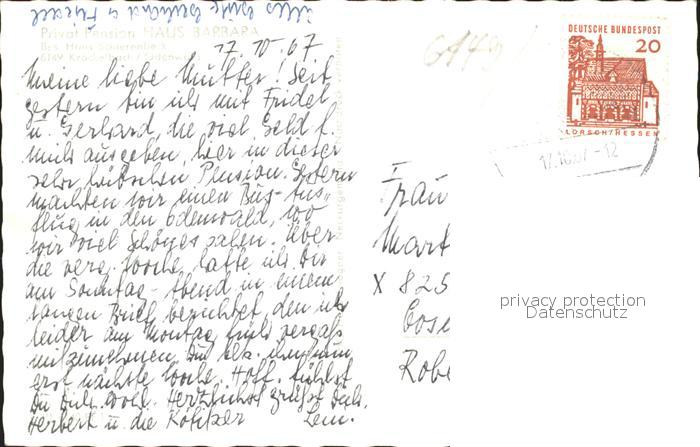 Alles Gute Gerhard u. Friedel
Privat Pension HAUS BARBARA
Bes. Hans Sauerenbach
6149
17.10.67
Meine liebe Mutter! Seit
gestern bin ich mit Friedel
u. Gerhard, die viel Geld f.
mich ausgeben, hier in dieser
sehr hübschen Pension. Gestern
machten wir einen Bus-Aus-
flug in den Odenwald, wo
wir viel Schönes sahen. Über
die verg. Woche hatte ich Dir
am Sonntag-Abend in einem
langen Brief berichtet, den ich
leider am Montag früh vergaß
mitzunehmen. Du
erst nächste Woche. Hoff. fühlst
Du Dich wohl. Herzlichst grüßt Dich
Herbert u. die
DEUTSCHE BUNDESPOST
20
LORSCH/HESSEN
17.10.67-12
Frau
Mart
X 825
Cose
Robe
privacy protection
Datenschutz